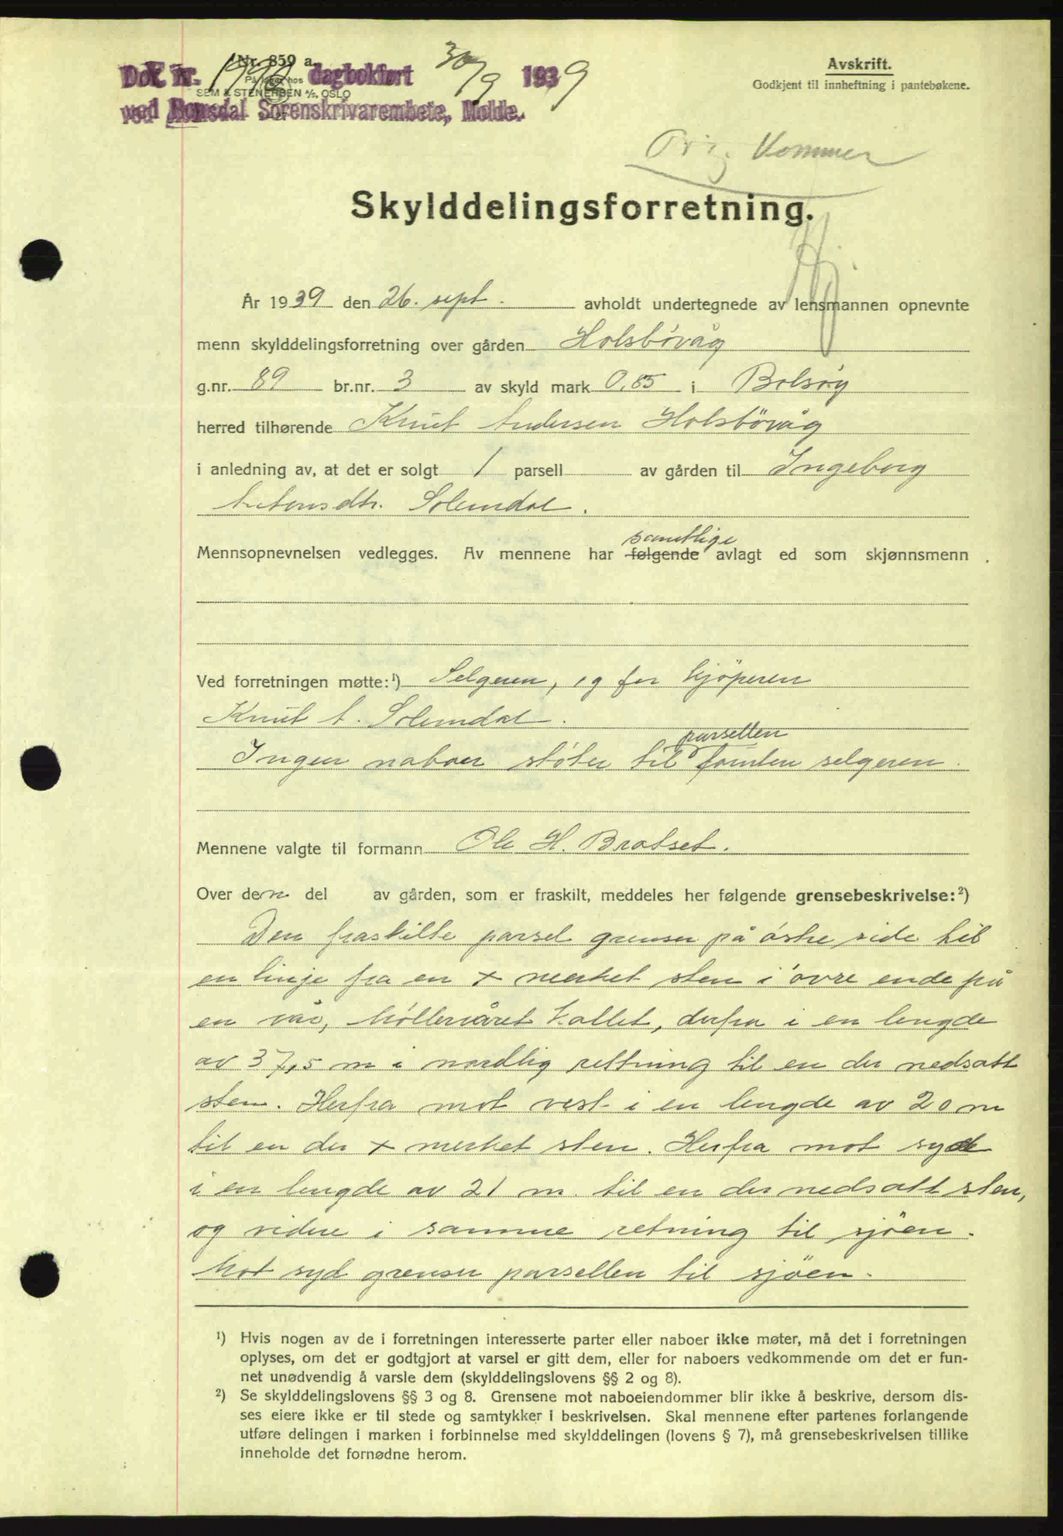 Nr. 859 a.
Dok. nr. 1992 dagbokført 30/9 1939
På lager hos
SEM & STENERSEN A/S, OSLO
ved Romsdal Sorenskrivarembete, Molde.
Avskrift.
Godkjent til innheftning i pantebøkene.
Orig. Kommer
Skylddelingsforretning.
År 1939 den 26. sept. avholdt undertegnede av lensmannen opnevnte
menn skylddelingsforretning over gården Holsbövåg
g.nr. 89 br.nr. 3 av skyld mark 0,85 i Bolsøy
herred tilhørende Knut Andersen Holsbövåg
i anledning av, at det er solgt 1 parsell av gården til Ingeborg
Antonsdtr. Solemdal.
samtlige
Mennsopnevnelsen vedlegges. Av mennene har følgende avlagt ed som skjønnsmenn
Ved forretningen møtte:¹) Selgeren, og for kjöperen
Knut A. Solemdal.
parsellen
Ingen naboer støter til foruten selgeren.
Mennene valgte til formann Ole H. Bratset.
Over den del av gården, som er fraskilt, meddeles her følgende grensebeskrivelse:²)
Den fraskilte parsel grenser på østre side til
en linje fra en + merket sten i övre ende på
en vår, Möllervåret kallet, derfra i en lengde
av 37,5 m i nordlig rettning til en der nedsatt
sten. Herfra mot vest i en lengde av 20 m
til en der + merket sten. Herfra mot syd
i en lengde av 21 m. til en der nedsatt sten,
og videre i samme retning til sjöen.
Mot syd grenser parsellen til sjöen.
¹) Hvis nogen av de i forretningen interesserte parter eller naboer ikke møter, må det i forretningen
oplyses, om det er godtgjort at varsel er gitt dem, eller for naboers vedkommende om det er fun-
net unødvendig å varsle dem (skylddelingslovens §§ 2 og 8).
²) Se skylddelingslovens §§ 3 og 8. Grensene mot naboeiendommer blir ikke å beskrive, dersom dis-
ses eiere ikke er til stede og samtykker i beskrivelsen. Skal mennene efter partenes forlangende
utføre delingen i marken i forbinnelse med skylddelingen (lovens § 7), må grensebeskrivelsen tillike
inneholde det fornødne herom.